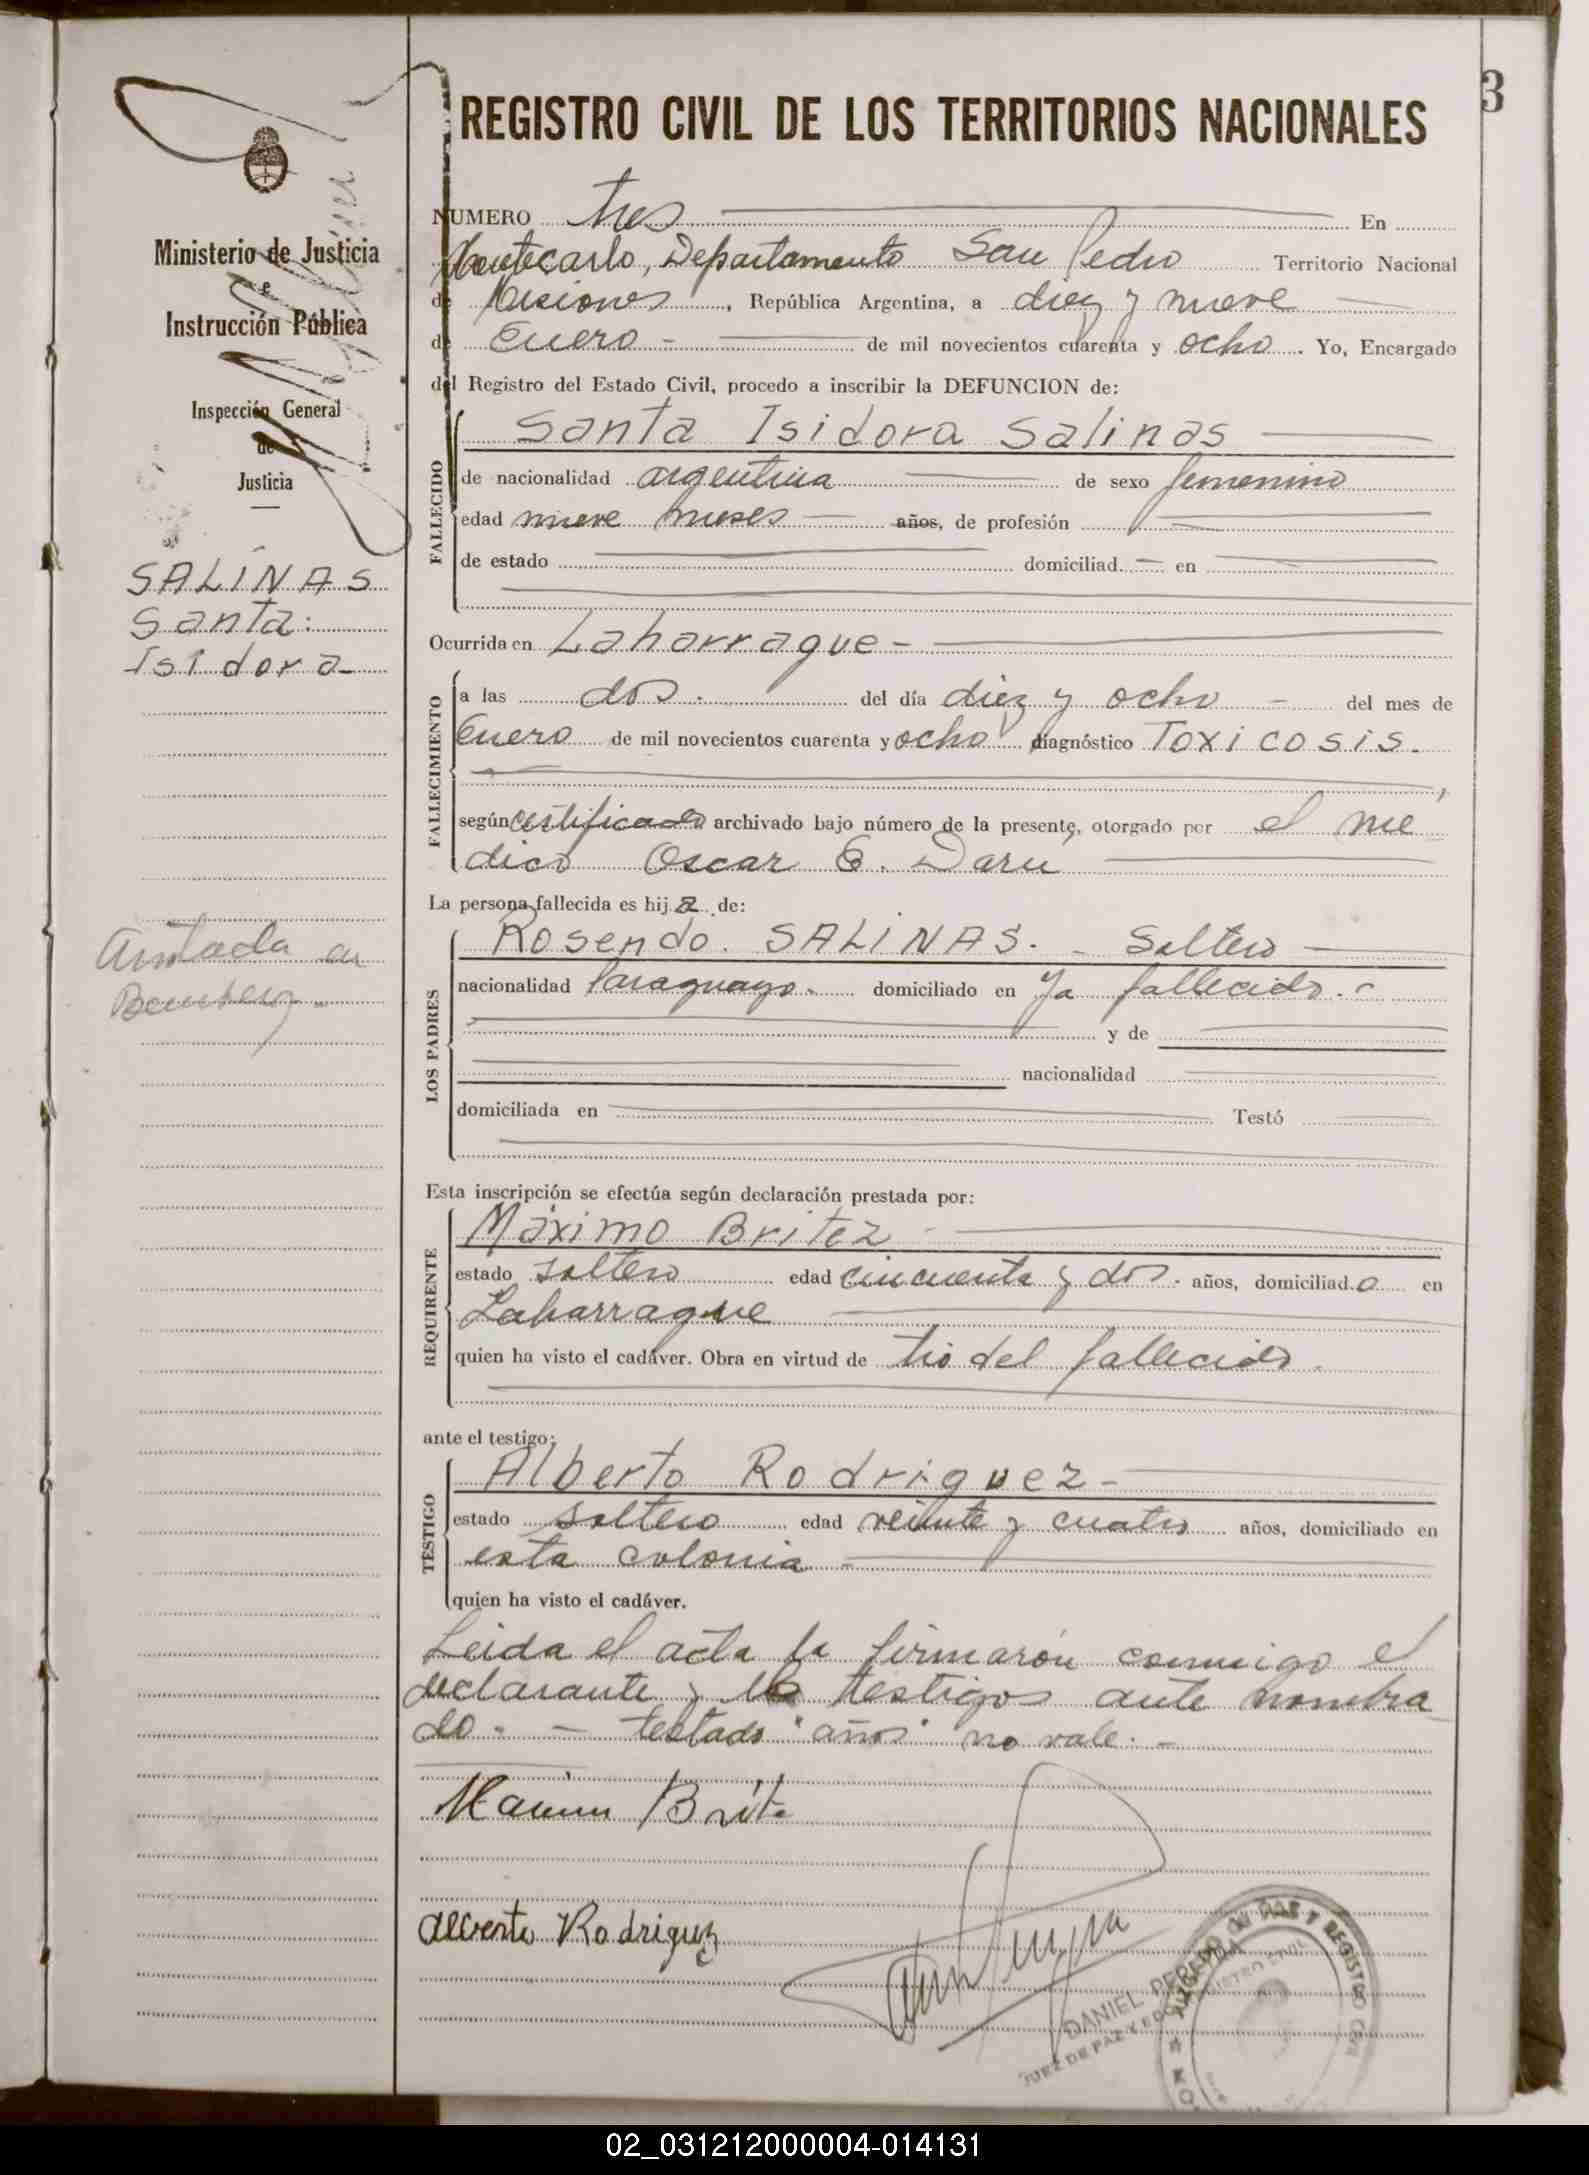 3
REGISTRO CIVIL DE LOS TERRITORIOS NACIONALES
Ministerio de Justicia
e
Instrucción Pública
Inspección General
de
Justicia
SALINAS
Santa
Isidora
Anotada en
NUMERO tres En
Montecarlo, Departamento San Pedro Territorio Nacional
de Misiones, República Argentina, a diez y nueve
de Enero - de mil novecientos cuarenta y ocho. Yo, Encargado
del Registro del Estado Civil, procedo a inscribir la DEFUNCION de:
FALLECIDO
Santa Isidora Salinas
de nacionalidad argentina de sexo femenino
edad nueve meses años, de profesión
de estado domiciliad en
Ocurrida en Laharrague -
FALLECIMIENTO
a las dos. del día diez y ocho - del mes de
Enero de mil novecientos cuarenta y ocho diagnóstico Toxicosis.
según certificado archivado bajo número de la presente, otorgado por el me
dico Oscar E. Daru
La persona fallecida es hija de:
LOS PADRES
Rosendo. SALINAS. - Soltero
nacionalidad Paraguayo. domiciliado en Ya fallecido. -
y de
nacionalidad
domiciliada en Testó
Esta inscripción se efectúa según declaración prestada por:
REQUIRENTE
Máximo Britez -
estado soltero edad cincuenta y dos. años, domiciliado en
Laharrague
quien ha visto el cadáver. Obra en virtud de tio del fallecido.
ante el testigo:
TESTIGO
Alberto Rodriguez -
estado soltero edad veinte y cuatro años, domiciliado en
esta colonia -
quien ha visto el cadáver.
Leida el acta la firmarón conmigo el
declarante y los testigos ante nombra
do. - testado "años" no vale. -
Brite
Alverto Rodriguez
DANIEL PEREYRA
JUEZ DE PAZ Y EDO. REGISTRO CIVIL
JUZGADO DE PAZ Y REGISTRO CIVIL
02_031212000004-014131